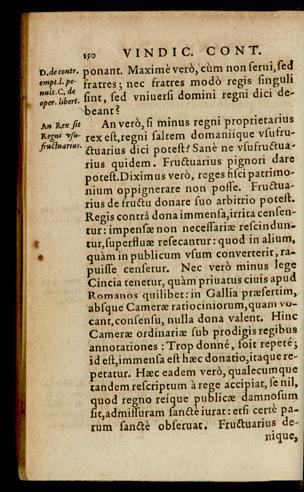 150 VINDIC. CONT.
D. de contr.
empt. l. pe-
nult. C. de
oper. libert.
ponant. Maximè verò, cùm non serui, sed
fratres; nec fratres modò regis singuli
sint, sed vniuersi domini regni dici de-
beant?
An Rex sit
Regni vsu-
fructuarius.
An verò, si minus regni proprietarius
rex est, regni saltem domaniique vsufru-
ctuarius dici potest? Sanè ne vsufructua-
rius quidem. Fructuarius pignori dare
potest. Diximus verò, reges fisci patrimo-
nium oppignerare non posse. Fructua-
rius de fructu donare suo arbitrio potest.
Regis contrà dona immensa, irrita censen-
tur: impensæ non necessariæ rescindun-
tur, superfluæ resecantur: quod in alium,
quàm in publicum vsum conuerterit, ra-
puisse censetur. Nec verò minus lege
Cincia tenetur, quàm priuatus ciuis apud
Romanos quilibet: in Gallia præsertim,
absque Cameræ ratiociniorum, quam vo-
cant, consensu, nulla dona valent. Hinc
Cameræ ordinariæ sub prodigis regibus
annotationes: Trop donné, soit repeté;
id est, immensa est hæc donatio, itaque re-
petatur. Hæc eadem verò, qualecumque
tandem rescriptum à rege accipiat, se nil,
quod regno reique publicæ damnosum
sit, admissuram sanctè iurat: etsi certè pa-
rum sanctè obseruat. Fructuarius de-
nique,